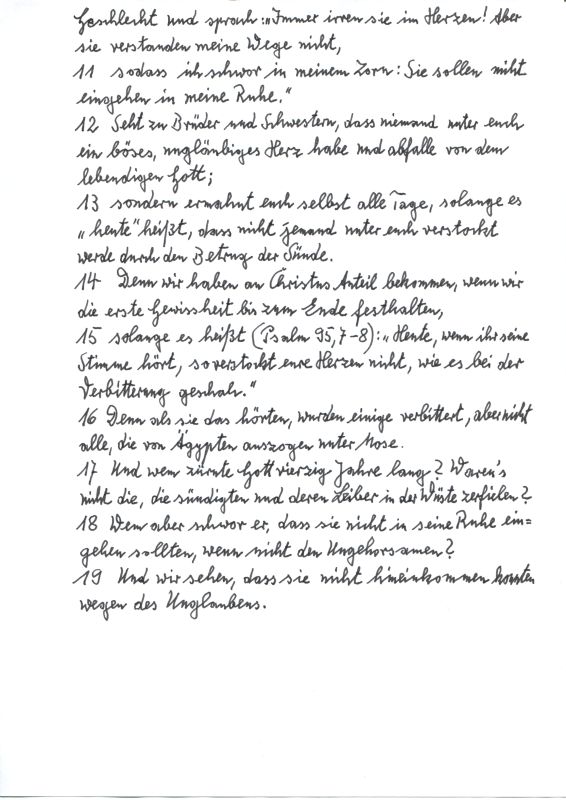 Geschlecht und sprach: „Immer irren sie im Herzen! Aber
sie verstanden meine Wege nicht,
11 sodass ich schwor in meinem Zorn: Sie sollen nicht
eingehen in meine Ruhe."
12 Seht zu Brüder und Schwestern, dass niemand unter euch
ein böses, ungläubiges Herz habe und abfalle von dem
lebendigen Gott;
13 sondern ermahnt euch selbst alle Tage, solange es
„heute" heißt, dass nicht jemand unter euch verstockt
werde durch den Betrug der Sünde.
14 Denn wir haben an Christus Anteil bekommen, wenn wir
die erste Gewissheit bis zum Ende festhalten,
15 solange es heißt (Psalm 95,7-8): „Heute, wenn ihr seine
Stimme hört, so verstockt eure Herzen nicht, wie es bei der
Verbitterung geschah."
16 Denn als sie das hörten, wurden einige verbittert, aber nicht
alle, die von Ägypten auszogen unter Mose.
17 Und wem zürnte Gott vierzig Jahre lang? Waren's
nicht die, die sündigten und deren Leiber in der Wüste zerfielen?
18 Wem aber schwor er, dass sie nicht in seine Ruhe ein=
gehen sollten, wenn nicht den Ungehorsamen?
19 Und wir sehen, dass sie nicht hineinkommen konnten
wegen des Unglaubens.